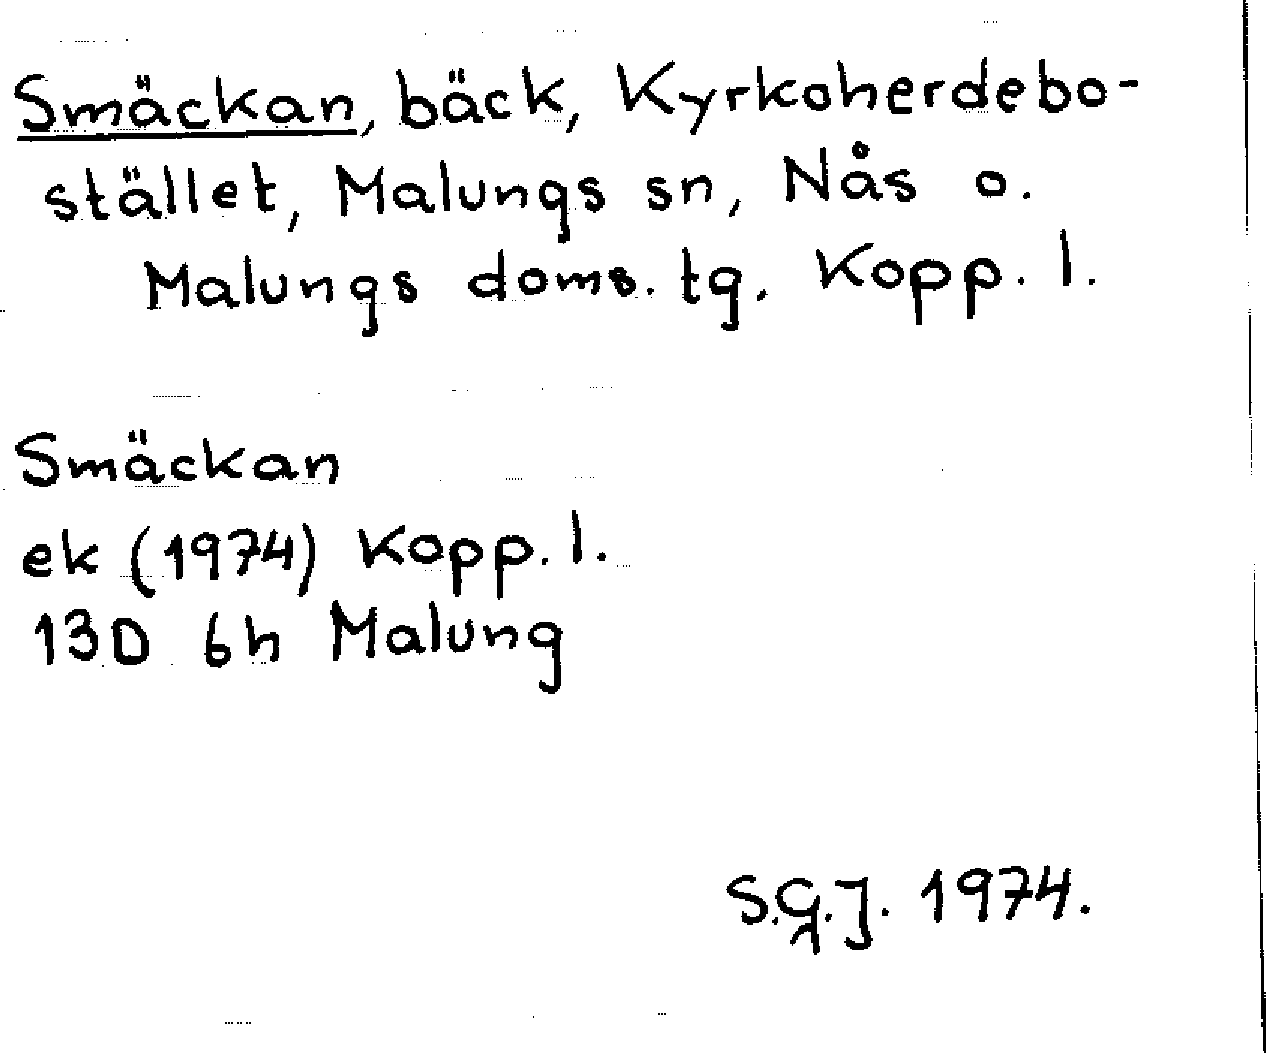 Smäckan, bäck, Kyrkoherdebo-
stället, Malungs sn, Nås o.
Malungs doms. tg. Kopp. l.
Smäckan
ek (1974) Kopp. l.
13D 6h Malung
S.G.J. 1974.